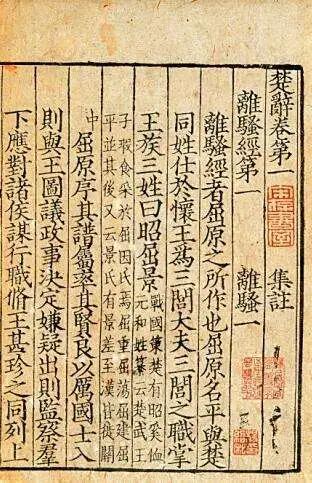 楚辭卷第一 集註
離騷經第一 離騷一
離騷經者屈原之所作也屈原名平與楚
同姓仕於懷王爲三閭大夫三閭之職掌
王族三姓曰昭屈景 戰國策楚有昭奚恤
元和姓纂云楚武王
子瑕食采於屈因氏焉屈重屈蕩屈建屈
平並其後又云景氏有景差至漢皆徙關
中 屈原序其譜屬率其賢良以厲國士入
則與王圖議政事決定嫌疑出則監察羣
下應對諸侯謀行職脩王甚珍之同列上